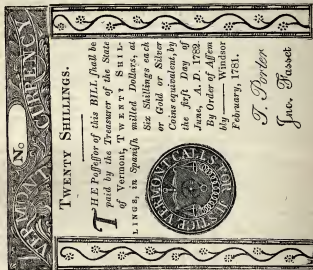 VERMONT CURRENCY
No
TWENTY SHILLINGS.
THE Poſſeſſor of this BILL ſhall be
paid by the Treaſurer of the State
of Vermont, TWENTY SHIL-
LINGS, in Spaniſh milled Dollars, at
Six Shillings each
or Gold or Silver
Coins equivalent, by
the firſt Day of
June, A. D. 1782.
By Order of Aſſem
bly —— Windsor
February, 1781.
VERMONT CALLS FOR JUSTICE
T. Porter
Jno. Fasset